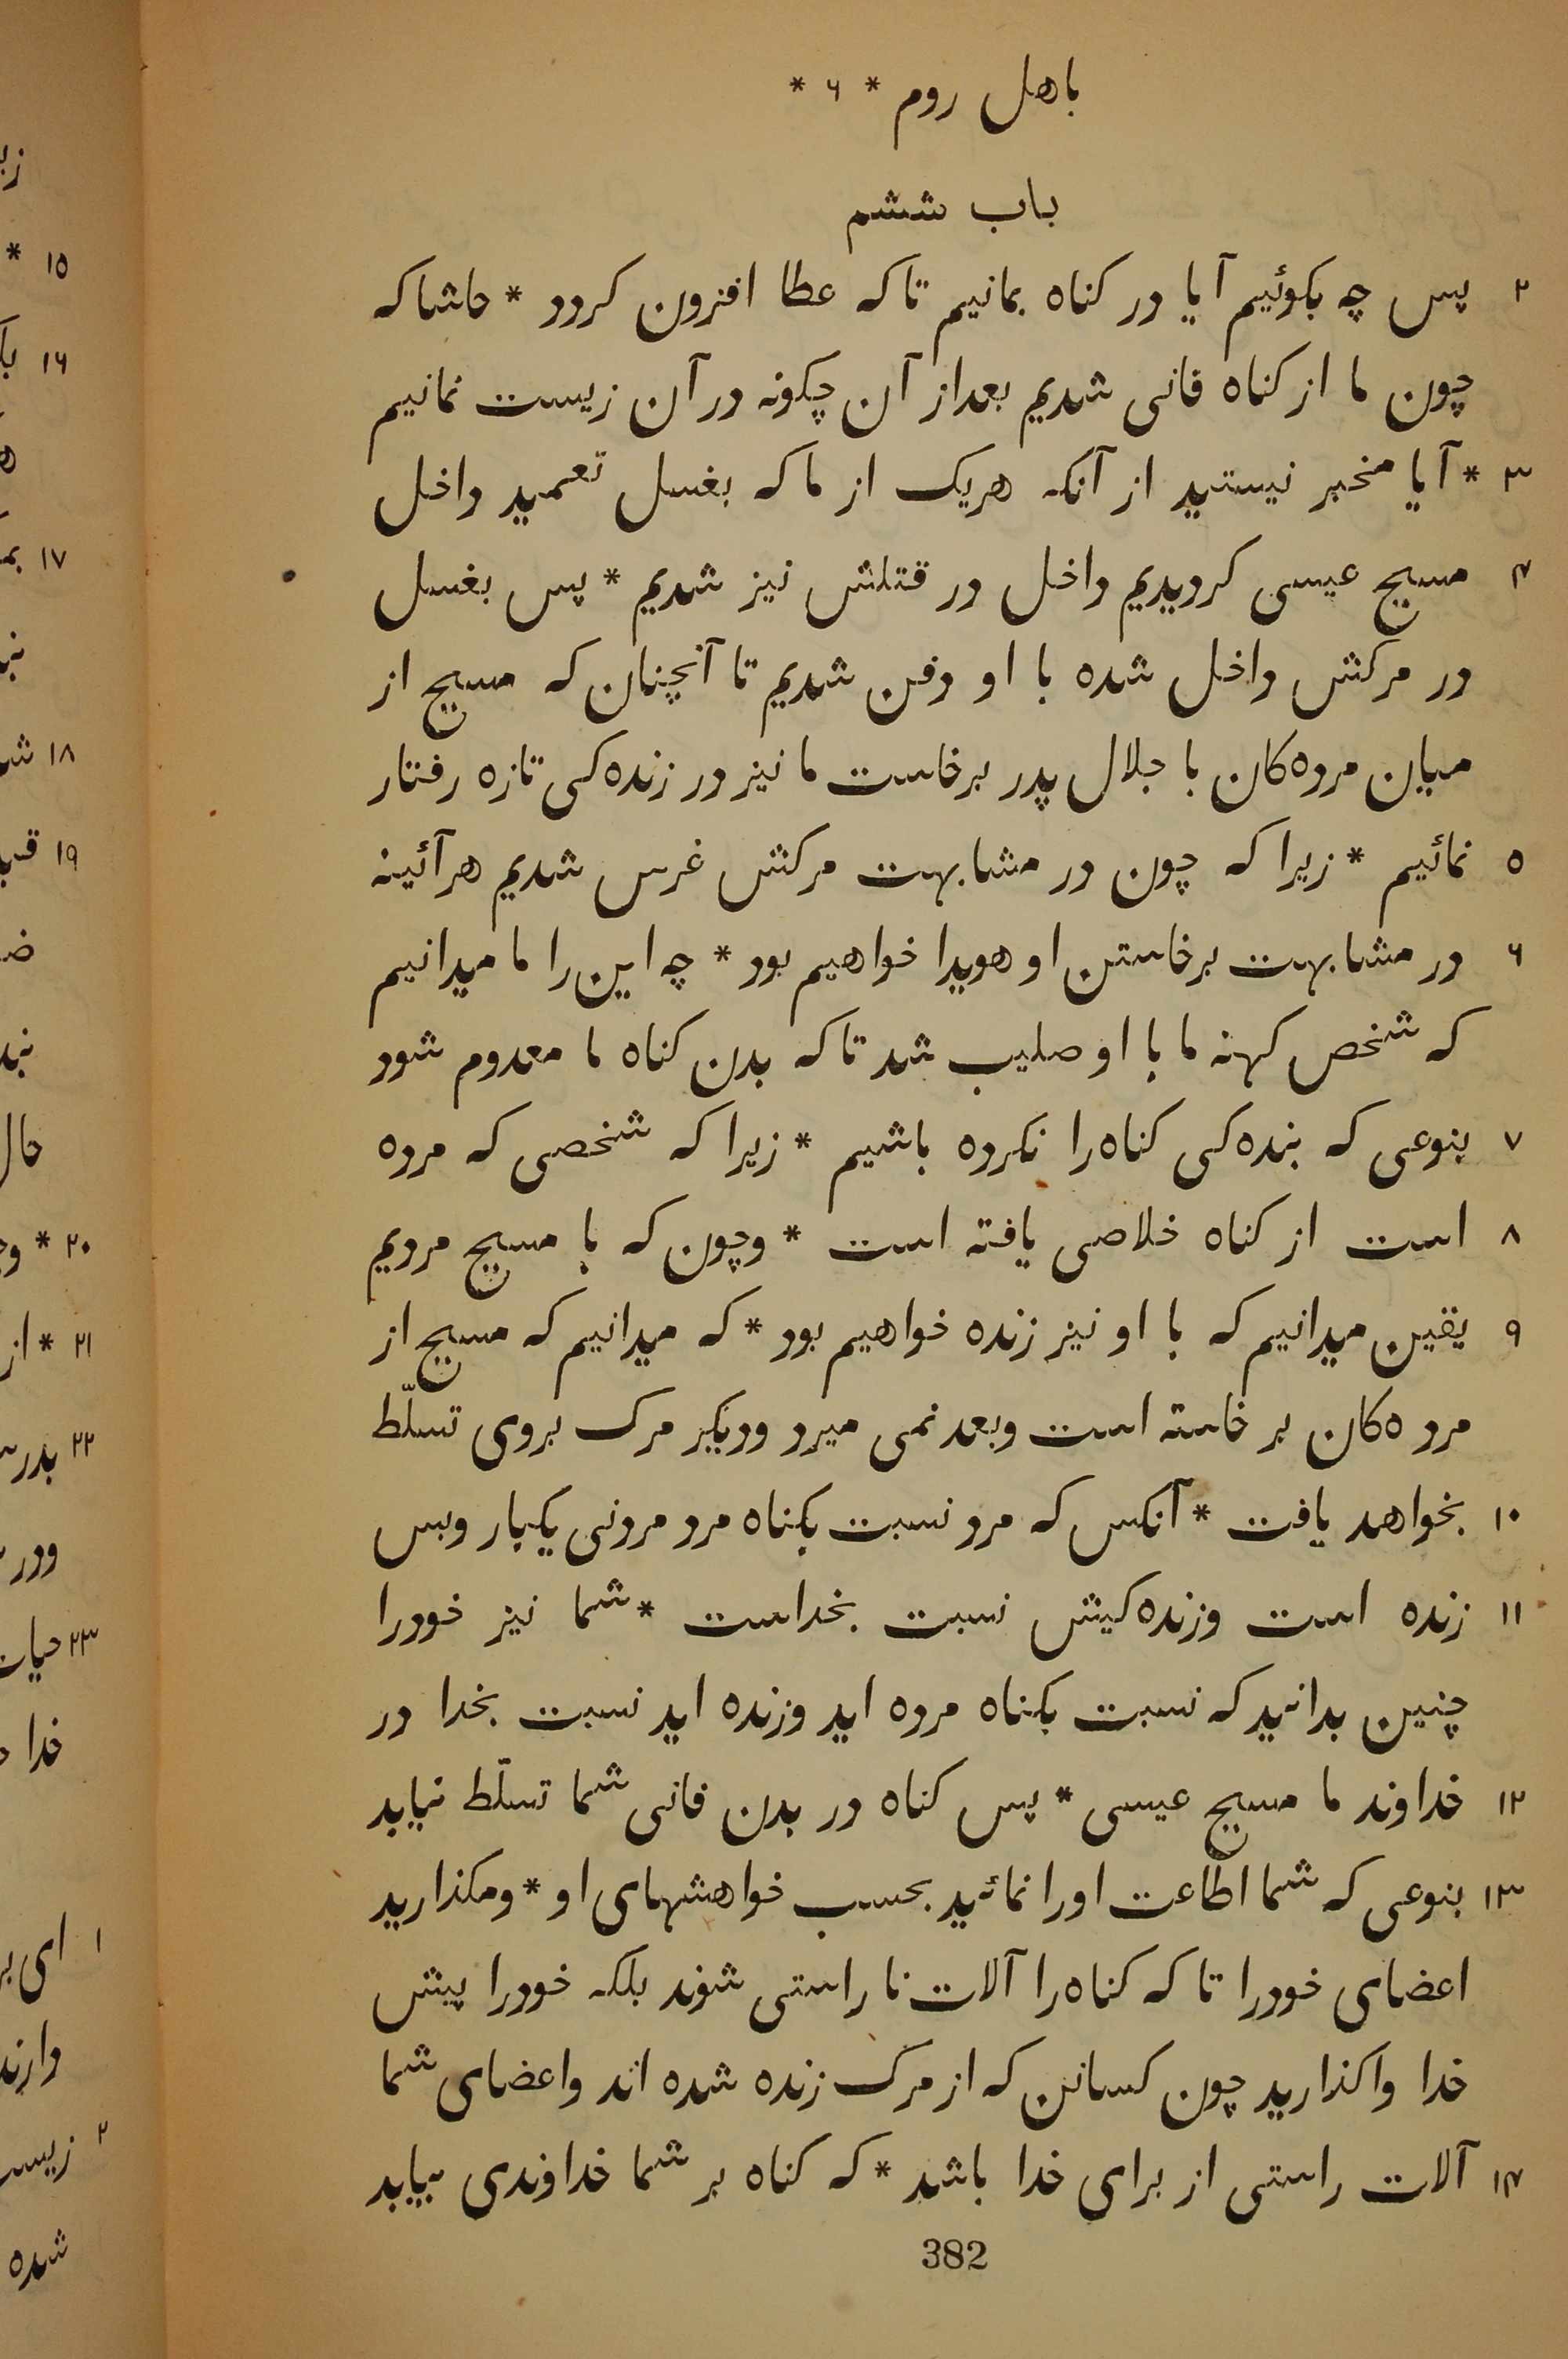 باهل روم * ۶ *
باب ششم
۲ پس چه بکوئیم آیا در کناه بمانیم تا که عطا افزون کردد * حاشا که
چون ما از کناه فانی شدیم بعد از آن چکونه در آن زیست نمانیم
۳ * آیا مخبر نیستید از آنکه هریک از ما که بغسل تعمید داخل
۴ مسیح عیسی کردیدیم داخل در قتلش نیز شدیم * پس بغسل
در مرکش داخل شده با او دفن شدیم تا آنچنان که مسیح از
میان مرده کان با جلال پدر برخاست ما نیز در زنده کی تازه رفتار
۵ نمائیم * زیرا که چون در مشابهت مرکش غرس شدیم هرآئینه
۶ در مشابهت برخاستن او هویدا خواهیم بود * چه این را ما میدانیم
که شخص کهنه ما با او صلیب شد تا که بدن کناه ما معدوم شود
۷ بنوعی که بنده کی کناه را نکرده باشیم * زیرا که شخصی که مرده
۸ است از کناه خلاصی یافته است * وچون که با مسیح مردیم
۹ یقین میدانیم که با او نیز زنده خواهیم بود * که میدانیم که مسیح از
مرده کان بر خاسته است وبعد نمی میرد ودیکر مرک بروی تسلّط
۱۰ نخواهد یافت * آنکس که مرد نسبت بکناه مرد مردنی یکبار وبس
۱۱ زنده است وزنده کیش نسبت بخداست * شما نیز خودرا
چنین بدانید که نسبت بکناه مرده اید وزنده اید نسبت بخدا در
۱۲ خداوند ما مسیح عیسی * پس کناه در بدن فانی شما تسلّط نیابد
۱۳ بنوعی که شما اطاعت اورا نمائید بحسب خواهشهای او * ومکذارید
اعضای خودرا تا که کناه را آلات نا راستی شوند بلکه خودرا پیش
خدا واکذارید چون کسانی که از مرک زنده شده اند واعضای شما
۱۴ آلات راستی از برای خدا باشد * که کناه بر شما خداوندی نیابد
382
۱۵ *
۱۶
۱۷
۱۸
۱۹
حال
۲۰ *
۲۱ * از
۲۲
۲۳
خدا
۱ ای
۲
شده